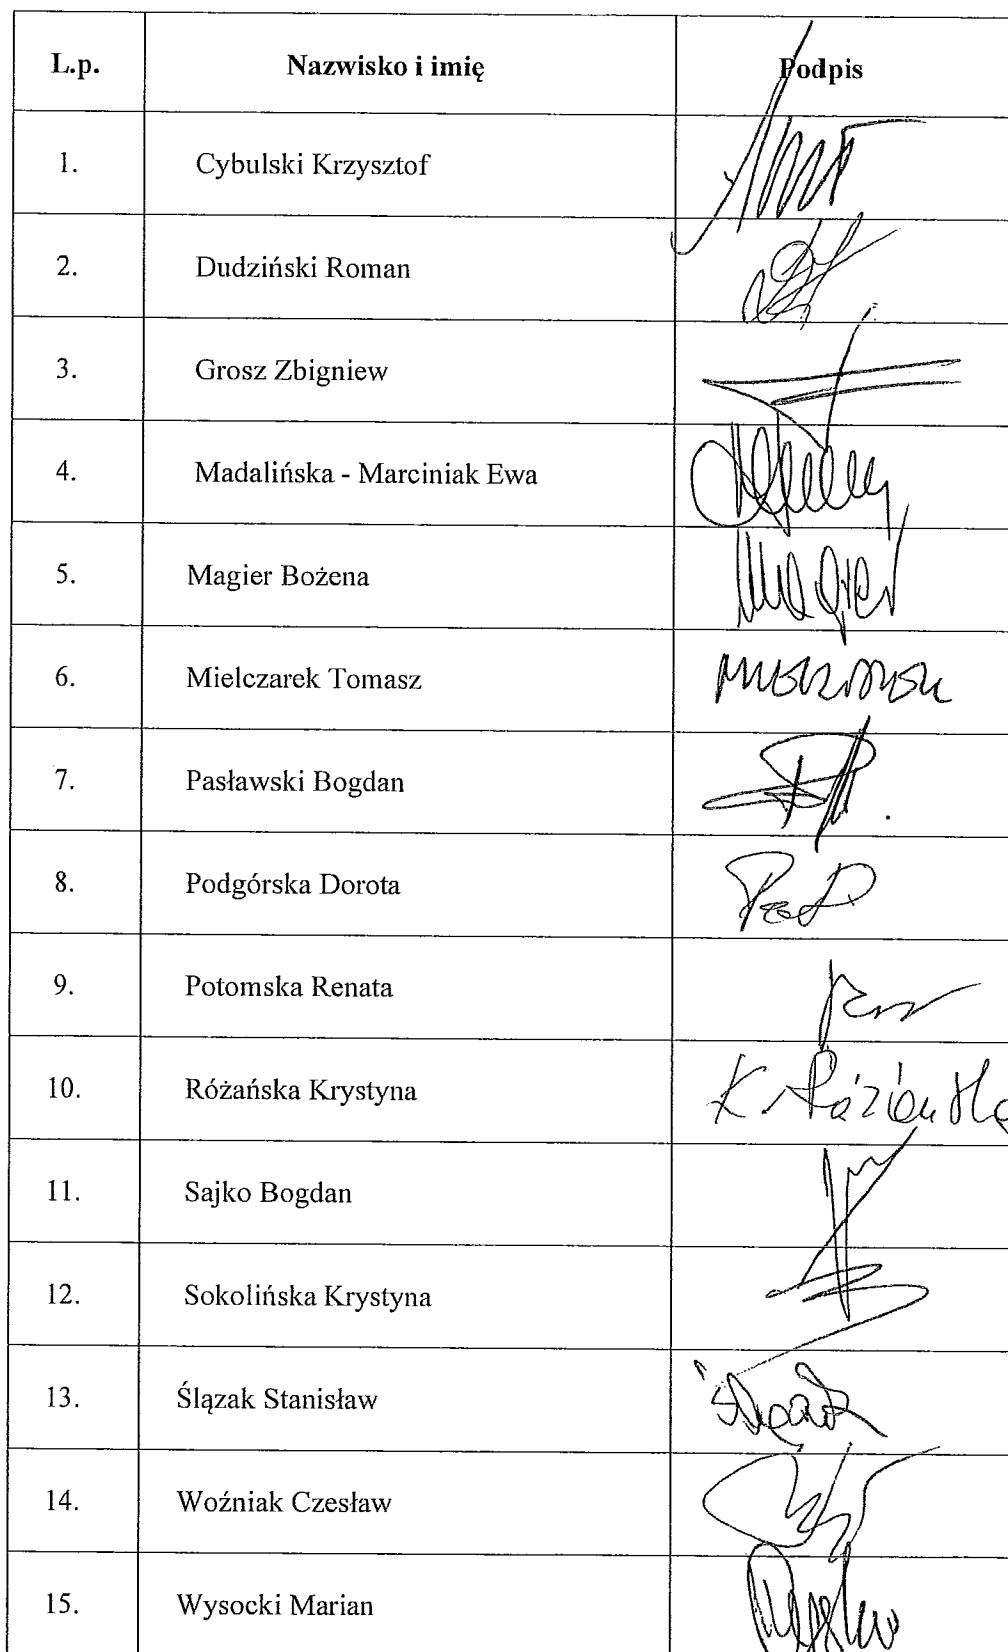 L.p. Nazwisko i imię Podpis
1. Cybulski Krzysztof
2. Dudziński Roman
3. Grosz Zbigniew
4. Madalińska - Marciniak Ewa
5. Magier Bożena Magier
6. Mielczarek Tomasz
7. Pasławski Bogdan
8. Podgórska Dorota
9. Potomska Renata
10. Różańska Krystyna K. Różańska
11. Sajko Bogdan
12. Sokolińska Krystyna
13. Ślązak Stanisław
14. Woźniak Czesław
15. Wysocki Marian